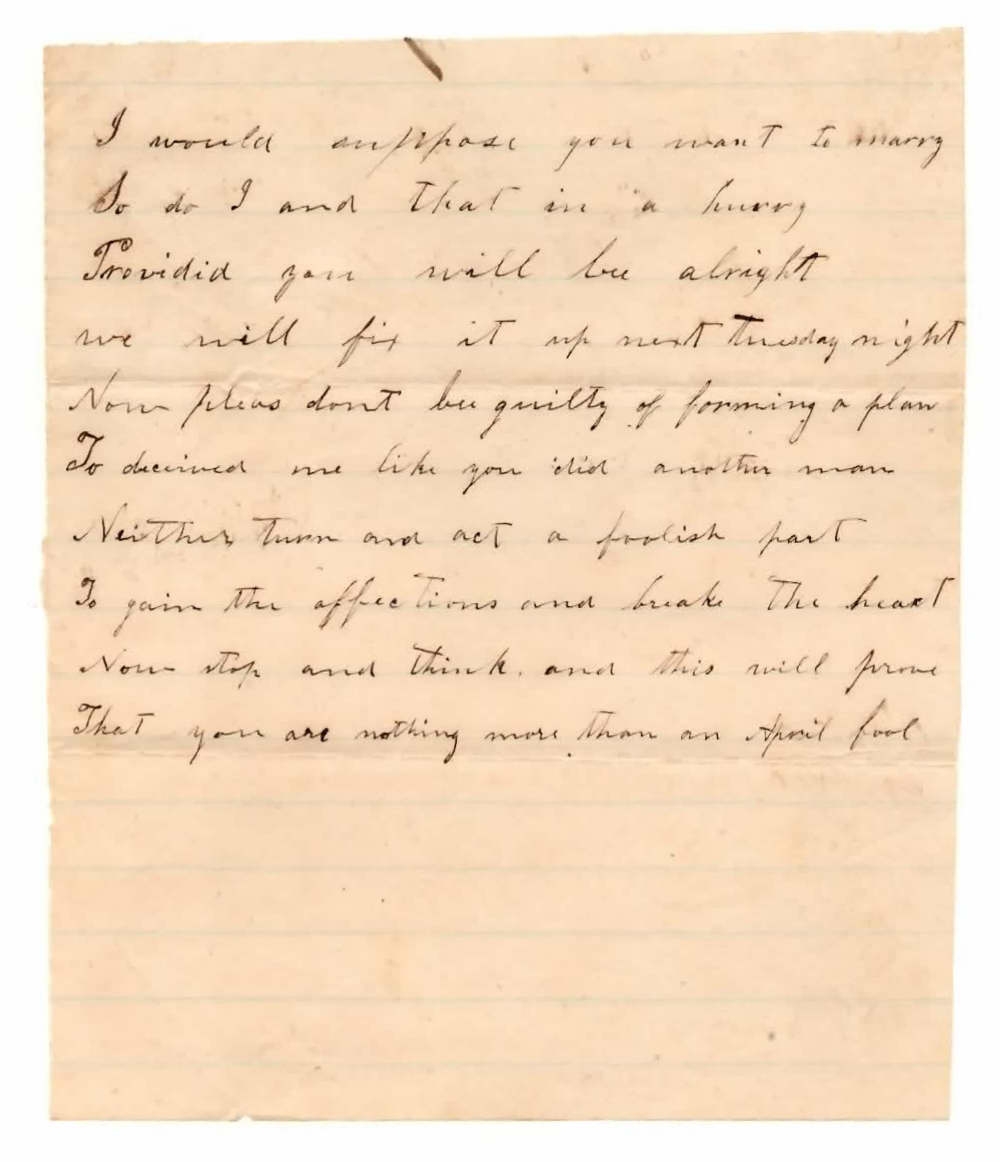 I would suppose you want to marry
So do I and that in a hurry
Providid you will bee alright
we will fix it up next Tuesday night
Now pleas dont bee guilty of forming a plan
To deceived me like you did another man
Neither turn and act a foolish part
To gain the affections and breake the heart
Now stop and think. and this will prove
That you are nothing more than an April fool